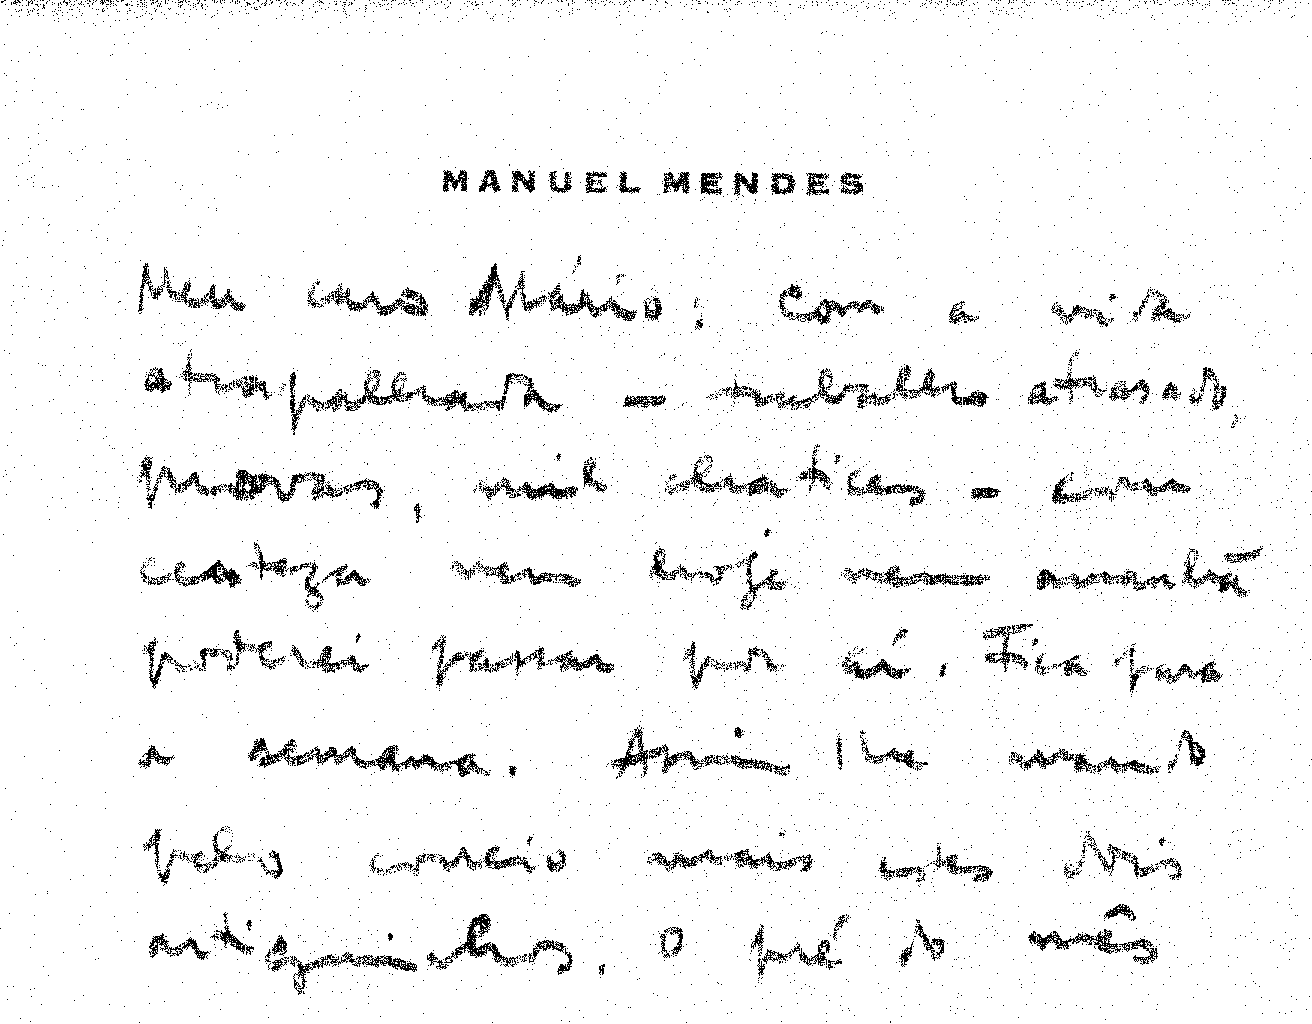 MANUEL MENDES
Meu caro Mário: com a vida
atrapalhada — trabalho atrasado,
provas, mil chatices — com
certeza nem hoje nem amanhã
poderei passar por aí. Fica para
a semana. Assim lhe mando
pelo correio mais estes dois
artiguinhos. O pré do mês